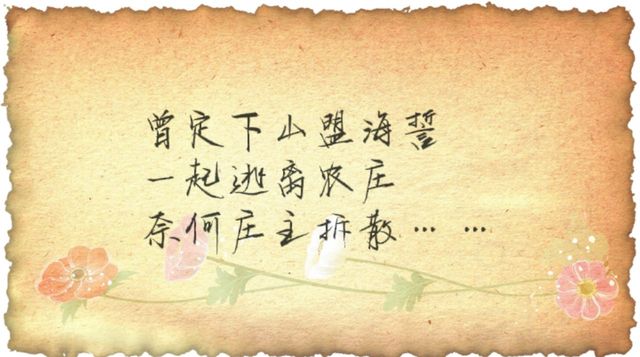 曾定下山盟海誓
一起逃离农庄
奈何庄主拆散… …